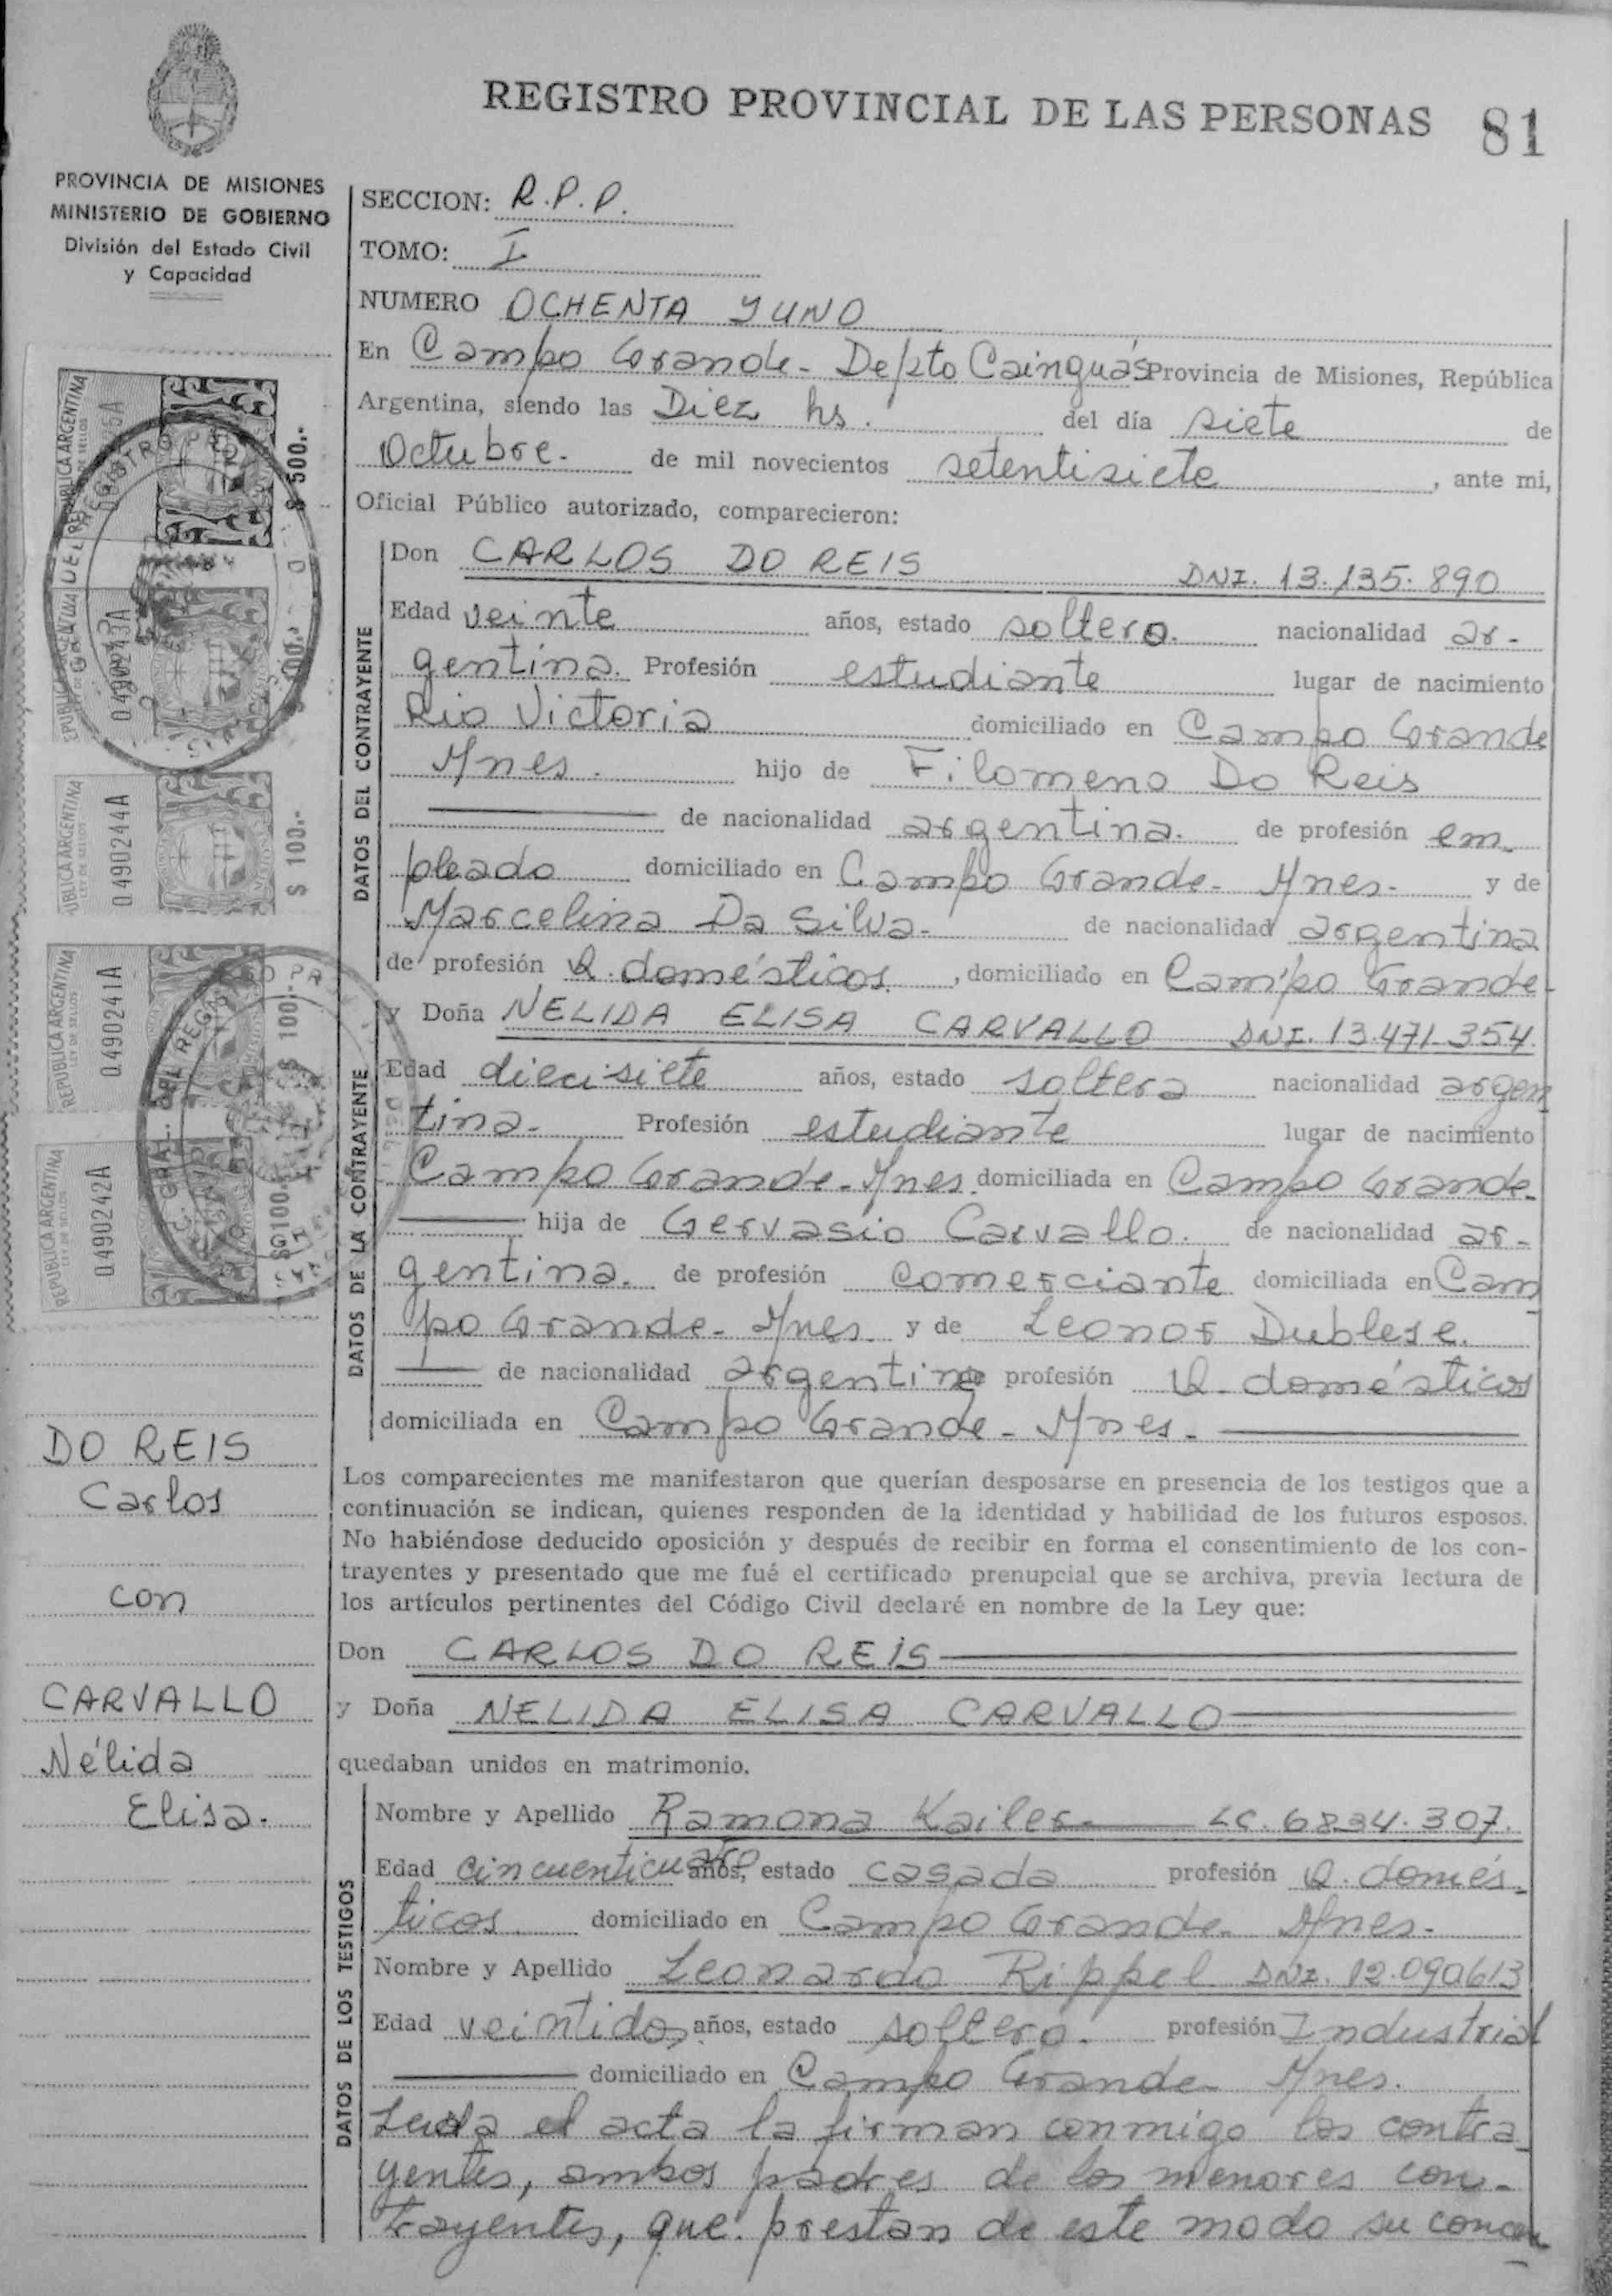 REGISTRO PROVINCIAL DE LAS PERSONAS 81
PROVINCIA DE MISIONES
MINISTERIO DE GOBIERNO
División del Estado Civil
y Capacidad
SECCION: R.P.P.
TOMO: I
NUMERO OCHENTA Y UNO
En Campo Grande - Depto Cainguás Provincia de Misiones, República
Argentina, siendo las Diez hs. del día siete de
Octubre. de mil novecientos setentisiete, ante mi,
Oficial Público autorizado, comparecieron:
DATOS DEL CONTRAYENTE
Don CARLOS DO REIS DNI. 13.135.890
Edad veinte años, estado soltero. nacionalidad ar-
gentina. Profesión estudiante lugar de nacimiento
Rio Victoria domiciliado en Campo Grande
Mnes. hijo de Filomeno Do Reis
de nacionalidad argentina. de profesión em-
pleado domiciliado en Campo Grande - Mnes- y de
Marcelina Da Silva- de nacionalidad argentina
de profesión Q. domésticos, domiciliado en Campo Grande-
DATOS DE LA CONTRAYENTE
y Doña NELIDA ELISA CARVALLO DNI. 13.471.354
Edad diecisiete años, estado soltera nacionalidad argen
tina- Profesión estudiante lugar de nacimiento
Campo Grande - Mnes. domiciliada en Campo Grande-
hija de Gervasio Carvallo. de nacionalidad ar-
gentina. de profesión comerciante domiciliada en Cam
po Grande - Mnes. y de Leonor Dublese.
de nacionalidad argentina de profesión Q. domésticos
domiciliada en Campo Grande - Mnes-
Los comparecientes me manifestaron que querían desposarse en presencia de los testigos que a
continuación se indican, quienes responden de la identidad y habilidad de los futuros esposos.
No habiéndose deducido oposición y después de recibir en forma el consentimiento de los con-
trayentes y presentado que me fué el certificado prenupcial que se archiva, previa lectura de
los artículos pertinentes del Código Civil declaré en nombre de la Ley que:
Don CARLOS DO REIS
y Doña NELIDA ELISA CARVALLO
quedaban unidos en matrimonio.
DATOS DE LOS TESTIGOS
Nombre y Apellido Ramona Kailer LC. 6834.307.
Edad cincuenticuatro años, estado casada profesión Q. domés-
ticos domiciliado en Campo Grande - Mnes-
Nombre y Apellido Leonardo Rippel DNI. 12.090613
Edad veintidos años, estado soltero. profesión Industrial
domiciliado en Campo Grande - Mnes.
Leida el acta la firman conmigo los contra-
yentes, ambos padres de los menores con-
trayentes, que prestan de este modo su concen
REPUBLICA ARGENTINA
LEY DE SELLOS
$ 500.-
0490243A
UBLICA ARGENTINA
LEY DE SELLOS
0490244A
$ 100.-
REPUBLICA ARGENTINA
LEY DE SELLOS
0490241A
$ 100.-
REPUBLICA ARGENTINA
LEY DE SELLOS
0490242A
$ 100.-
DO REIS
Carlos
con
CARVALLO
Nélida
Elisa.